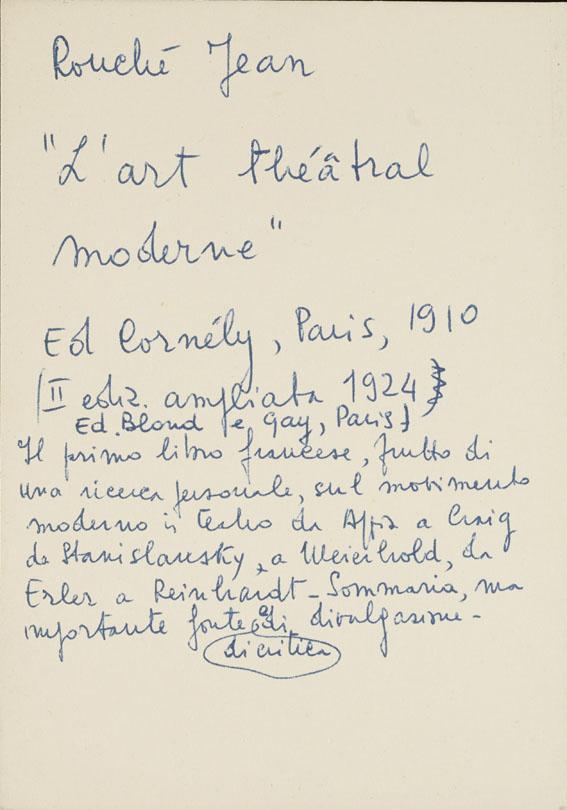 Rouché Jean
"L'art théâtral
moderne"
Ed Cornély, Paris, 1910
(II ediz. ampliata 1924)
Ed. Bloud e Gay, Paris)
Il primo libro francese, frutto di
una ricerca personale, sul movimento
moderno in teatro da Appia a Craig
da Stanislawsky, a Meierhold, da
Erler a Reinhardt - Sommaria, ma
importante fonte di divulgazione -
di critica